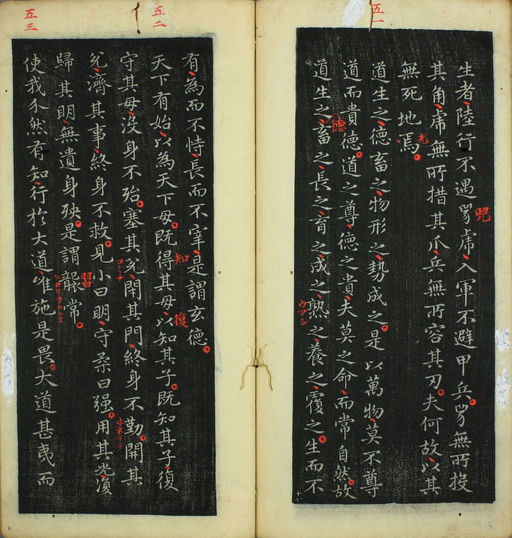 五一
生者陸行不遇兕虎入軍不避甲兵兕無所投
其角虎無所措其爪兵無所容其刃夫何故以其
無死地焉
道生之德畜之物形之勢成之是以萬物莫不尊
道而貴德道之尊德之貴夫莫之命而常自然故
道生之畜之長之育之成之熟之養之覆之生而不
五二
有為而不恃長而不宰是謂玄德
天下有始以為天下母既得其母以知其子既知其子復
守其母没身不殆塞其兊閉其門終身不勤開其
兊濟其事終身不救見小曰明守柔曰强用其光復
歸其明無遺身殃是謂襲常
五三
使我介然有知行於大道唯施是畏大道甚夷而
兕
德
ウマシ
知
復
習